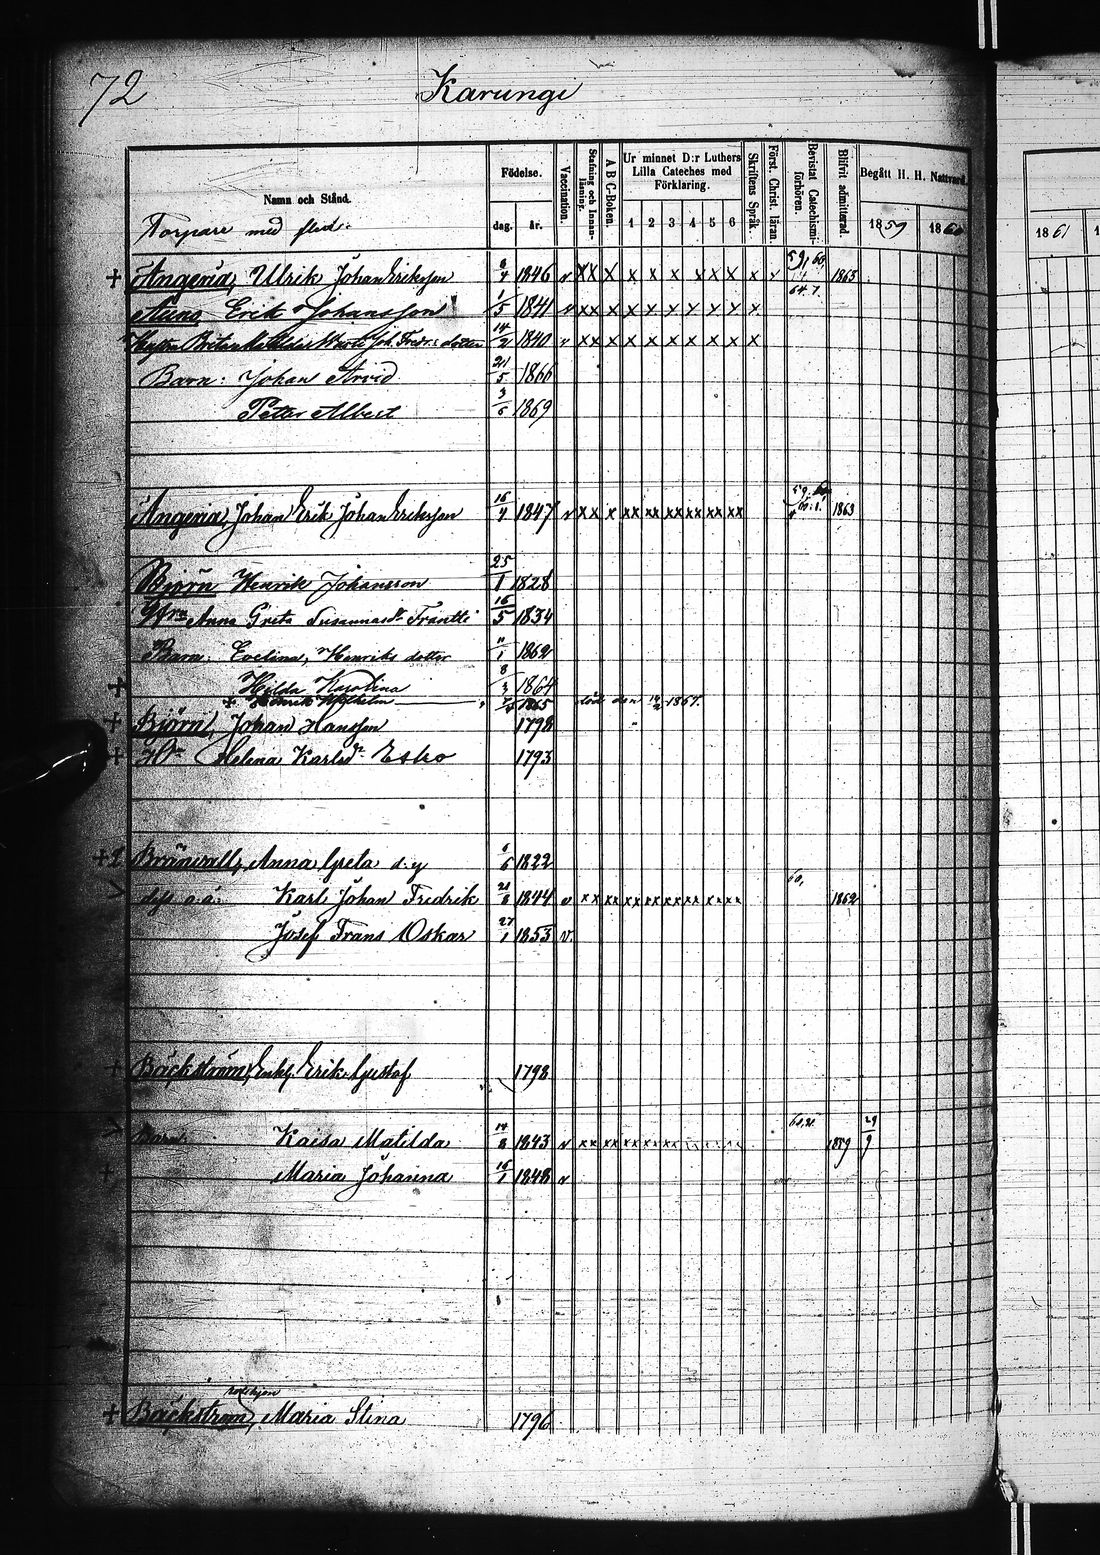 72
Karungi
Namn och Stånd.
Födelse.
dag.
år.
Vaccination.
Stafning och Innanläsning.
A B C-Boken.
Ur minnet D:r Luthers Lilla Cateches med Förklaring.
1 2 3 4 5 6
Skriftens Språk.
Först. Christ. läran.
Bevistat Catechismiförhören.
Blifvit admitterad.
Begått H. H. Nattvard.
1859 1860
1861
Torpare med flera.
+ Angeria, Ulrik Johan Eriksson 6/4 1846 v xx x x x x x x x x v 59, 60, 64. 7. 1863
Erik Johansson 1/3 1841 v xx x x x x x x x x
1840 v xx x x x x x x x x
Barn: Johan Arvid 21/5 1866
Peter Albert 3/6 1869
Angeria, Johan Erik Johan Eriksson 1847 v xx x xx xx xx xx xx xx 1863
Björn Henrik Johansson 25/1 1828
Anna Greta Susannasdr Frantti 16/5 1834
Barn: Evelina, Henriks dotter 11/1 1862
+ Hilda Karolina 1864
+ Henrik Wilhelm 1865 död den 1867.
+ Björn, Johan Hansson 1798
+ Hu Helena Karlsdr Esko 1793
+ Brännvall, Anna Greta d. y 6/6 1822
dess o.ä. Karl Johan Fredrik 21/8 1844 v xx xx xx xx xx xx xx xx 60, 1862
Josef Frans Oskar 27/1 1853 v.
+ Bäckström, Enkl. Erik Gustaf 1798
Barn: Kaisa Matilda 14/8 1843 v xx xx xx xx xx 1859 29/9
+ Maria Johanna 16/1 1848 v
+ Bäckström, Maria Stina 1796